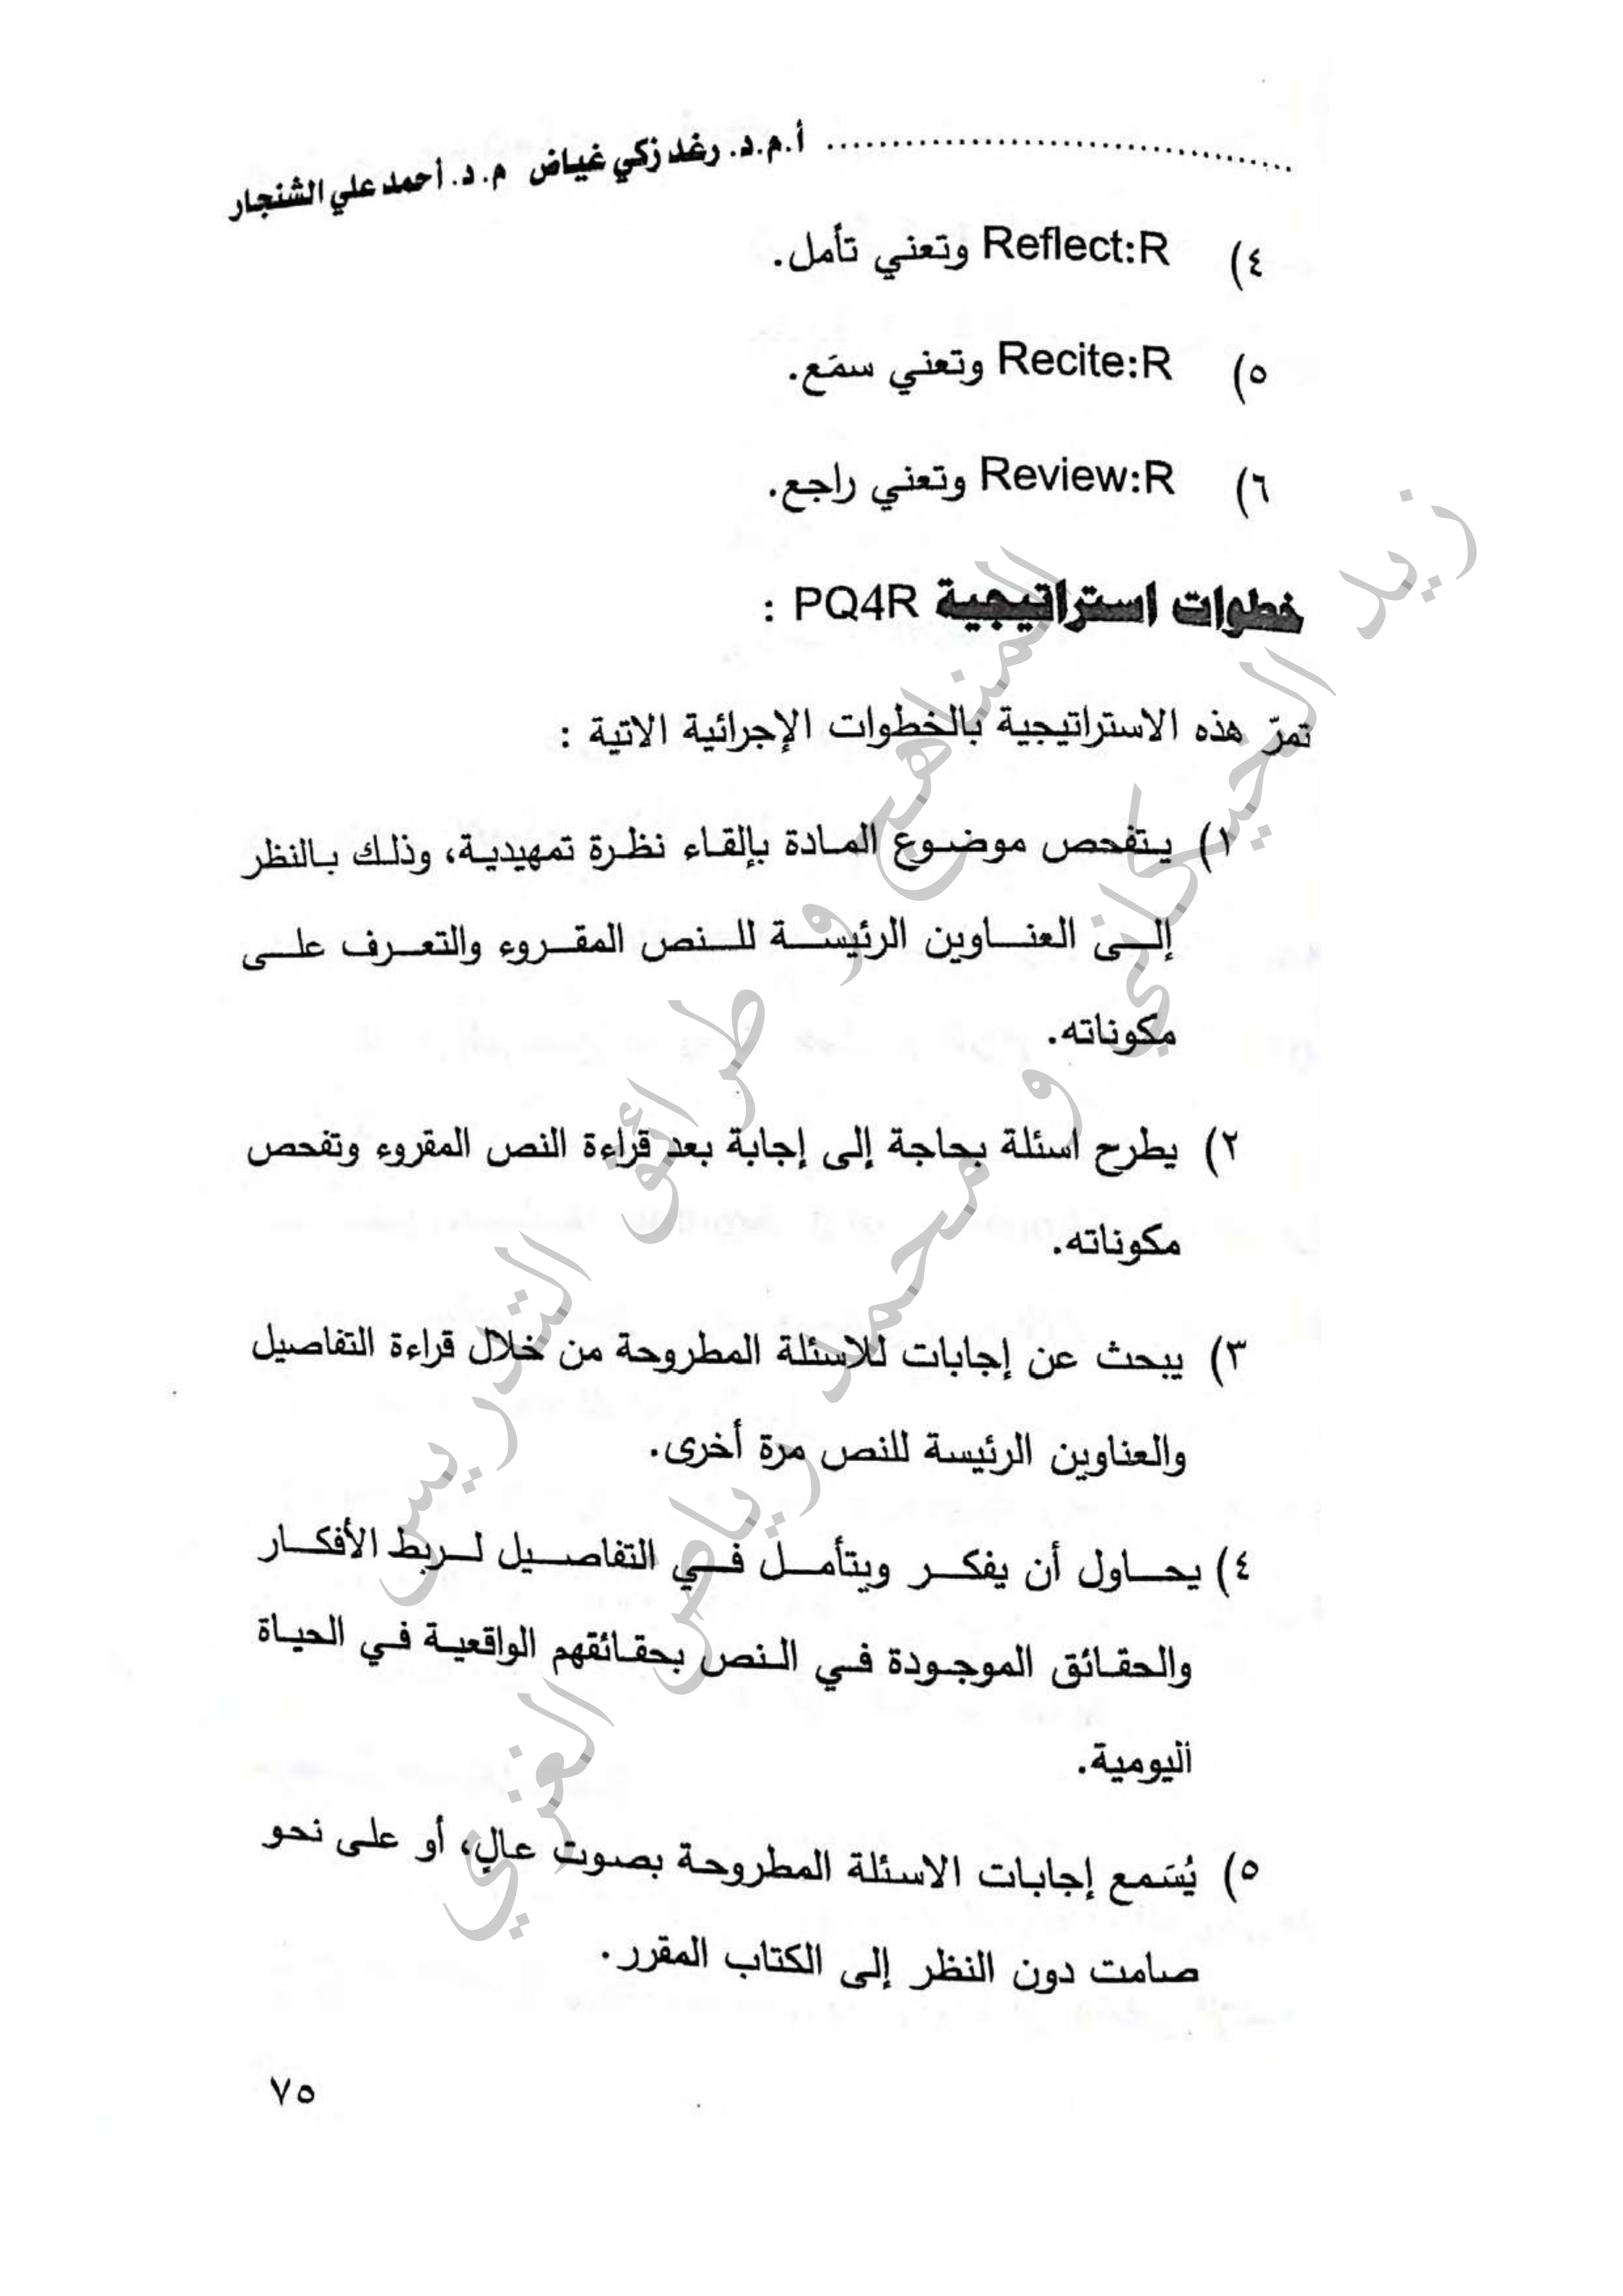 أ.م.د. رغد زكي غياض م.د. أحمد علي الشنجار
٤) Reflect:R وتعني تأمل.
٥) Recite:R وتعني سمَع.
٦) Review:R وتعني راجع.
خطوات استراتيجية PQ4R :
تمرّ هذه الاستراتيجية بالخطوات الإجرائية الاتية :
١) يتفحص موضوع المادة بإلقاء نظرة تمهيدية، وذلك بالنظر
إلى العناوين الرئيسة للنص المقروء والتعرف على
مكوناته.
٢) يطرح اسئلة بحاجة إلى إجابة بعد قراءة النص المقروء وتفحص
مكوناته.
٣) يبحث عن إجابات للاسئلة المطروحة من خلال قراءة التفاصيل
والعناوين الرئيسة للنص مرة أخرى.
٤) يحاول أن يفكر ويتأمل في التفاصيل لربط الأفكار
والحقائق الموجودة في النص بحقائقهم الواقعية في الحياة
اليومية.
٥) يُسَمع إجابات الاسئلة المطروحة بصوت عالٍ، أو على نحو
صامت دون النظر إلى الكتاب المقرر.
٧٥
المناهج و طرائق التدريس
زيد الخيكاني و محمد رياض الغزي